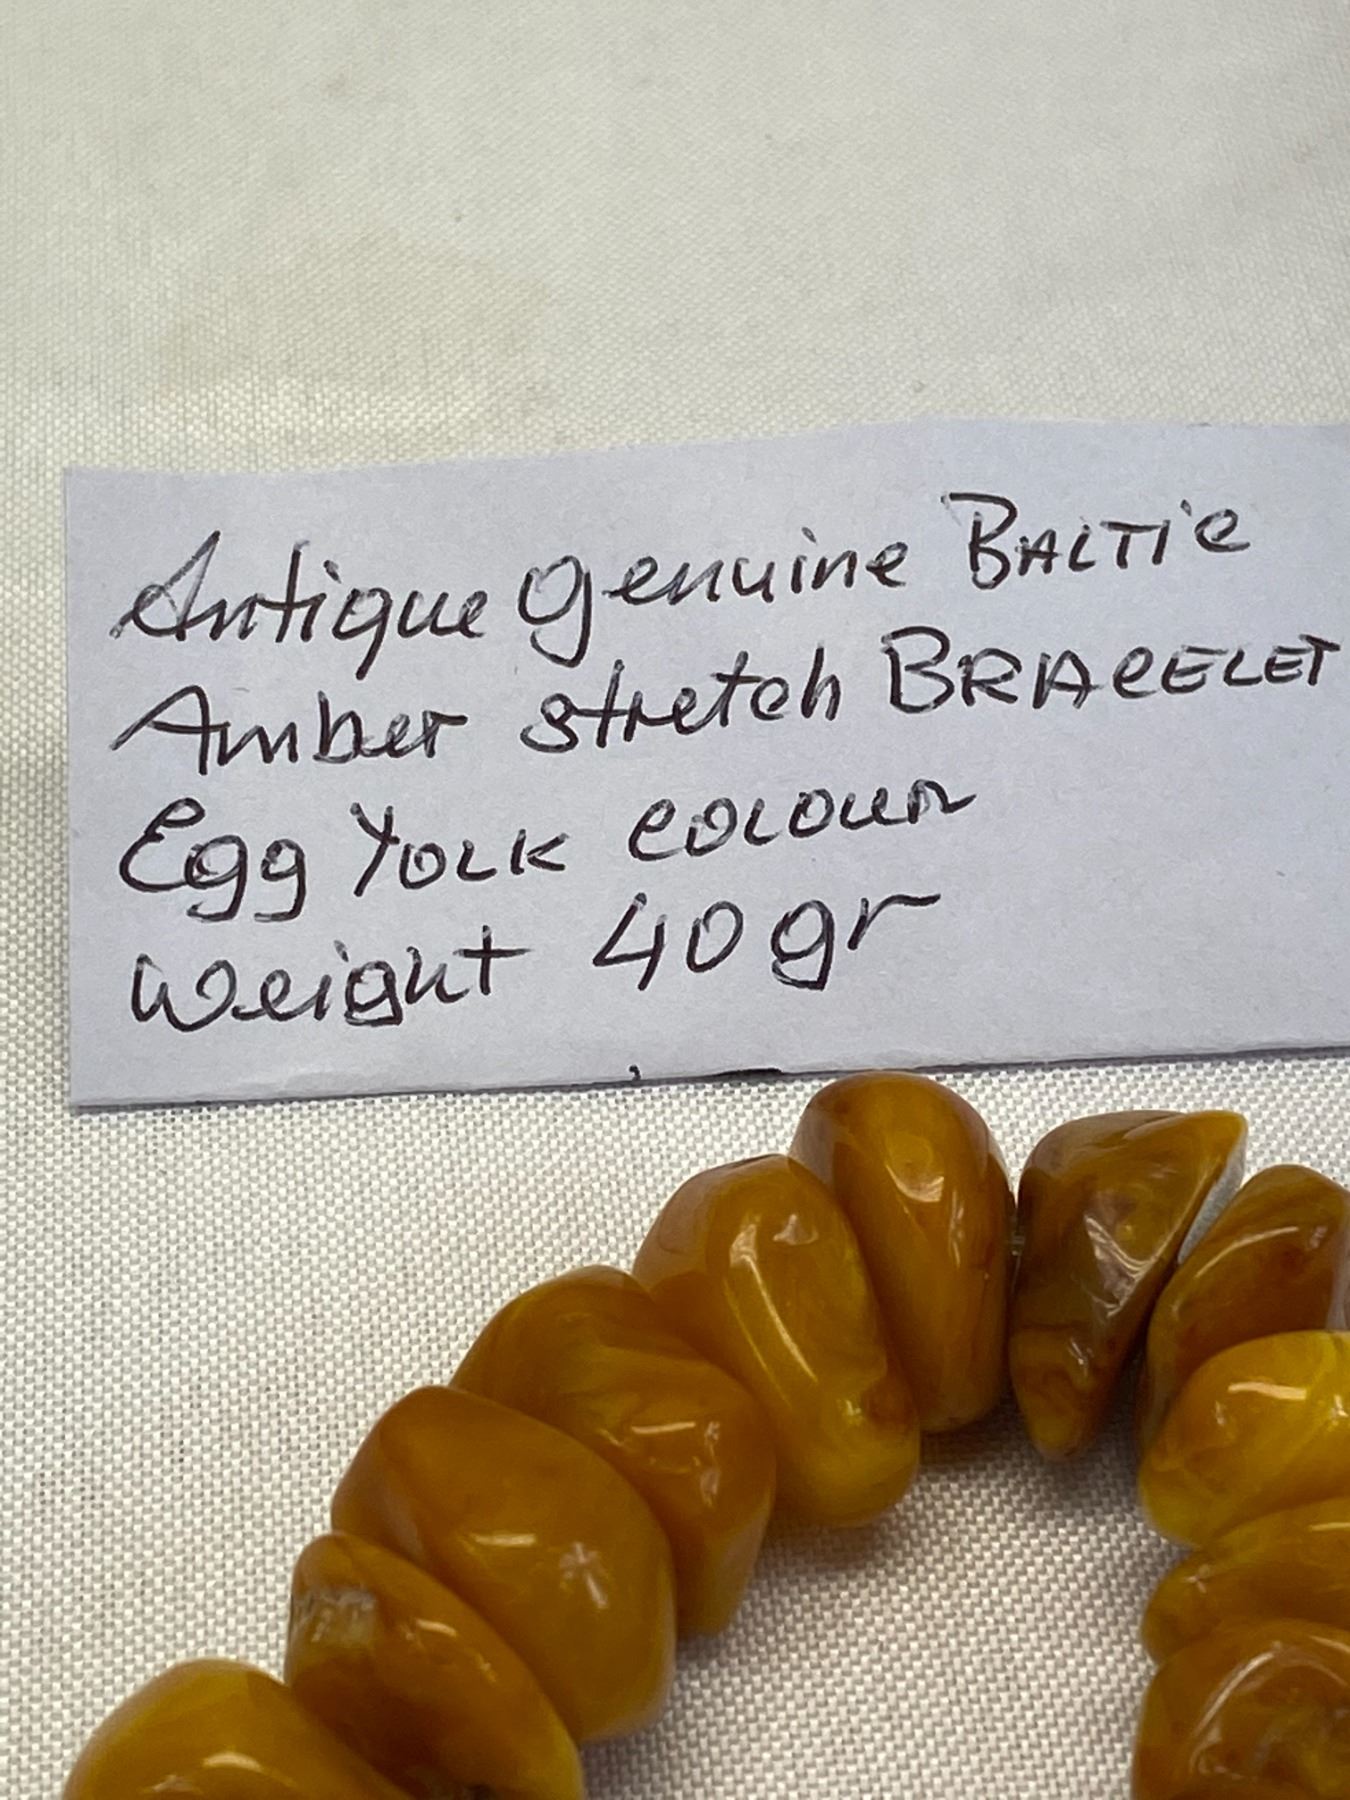 Antique genuine BALTIC
Amber stretch BRACELET
Egg YOLK COLOUR
Weight 40 gr